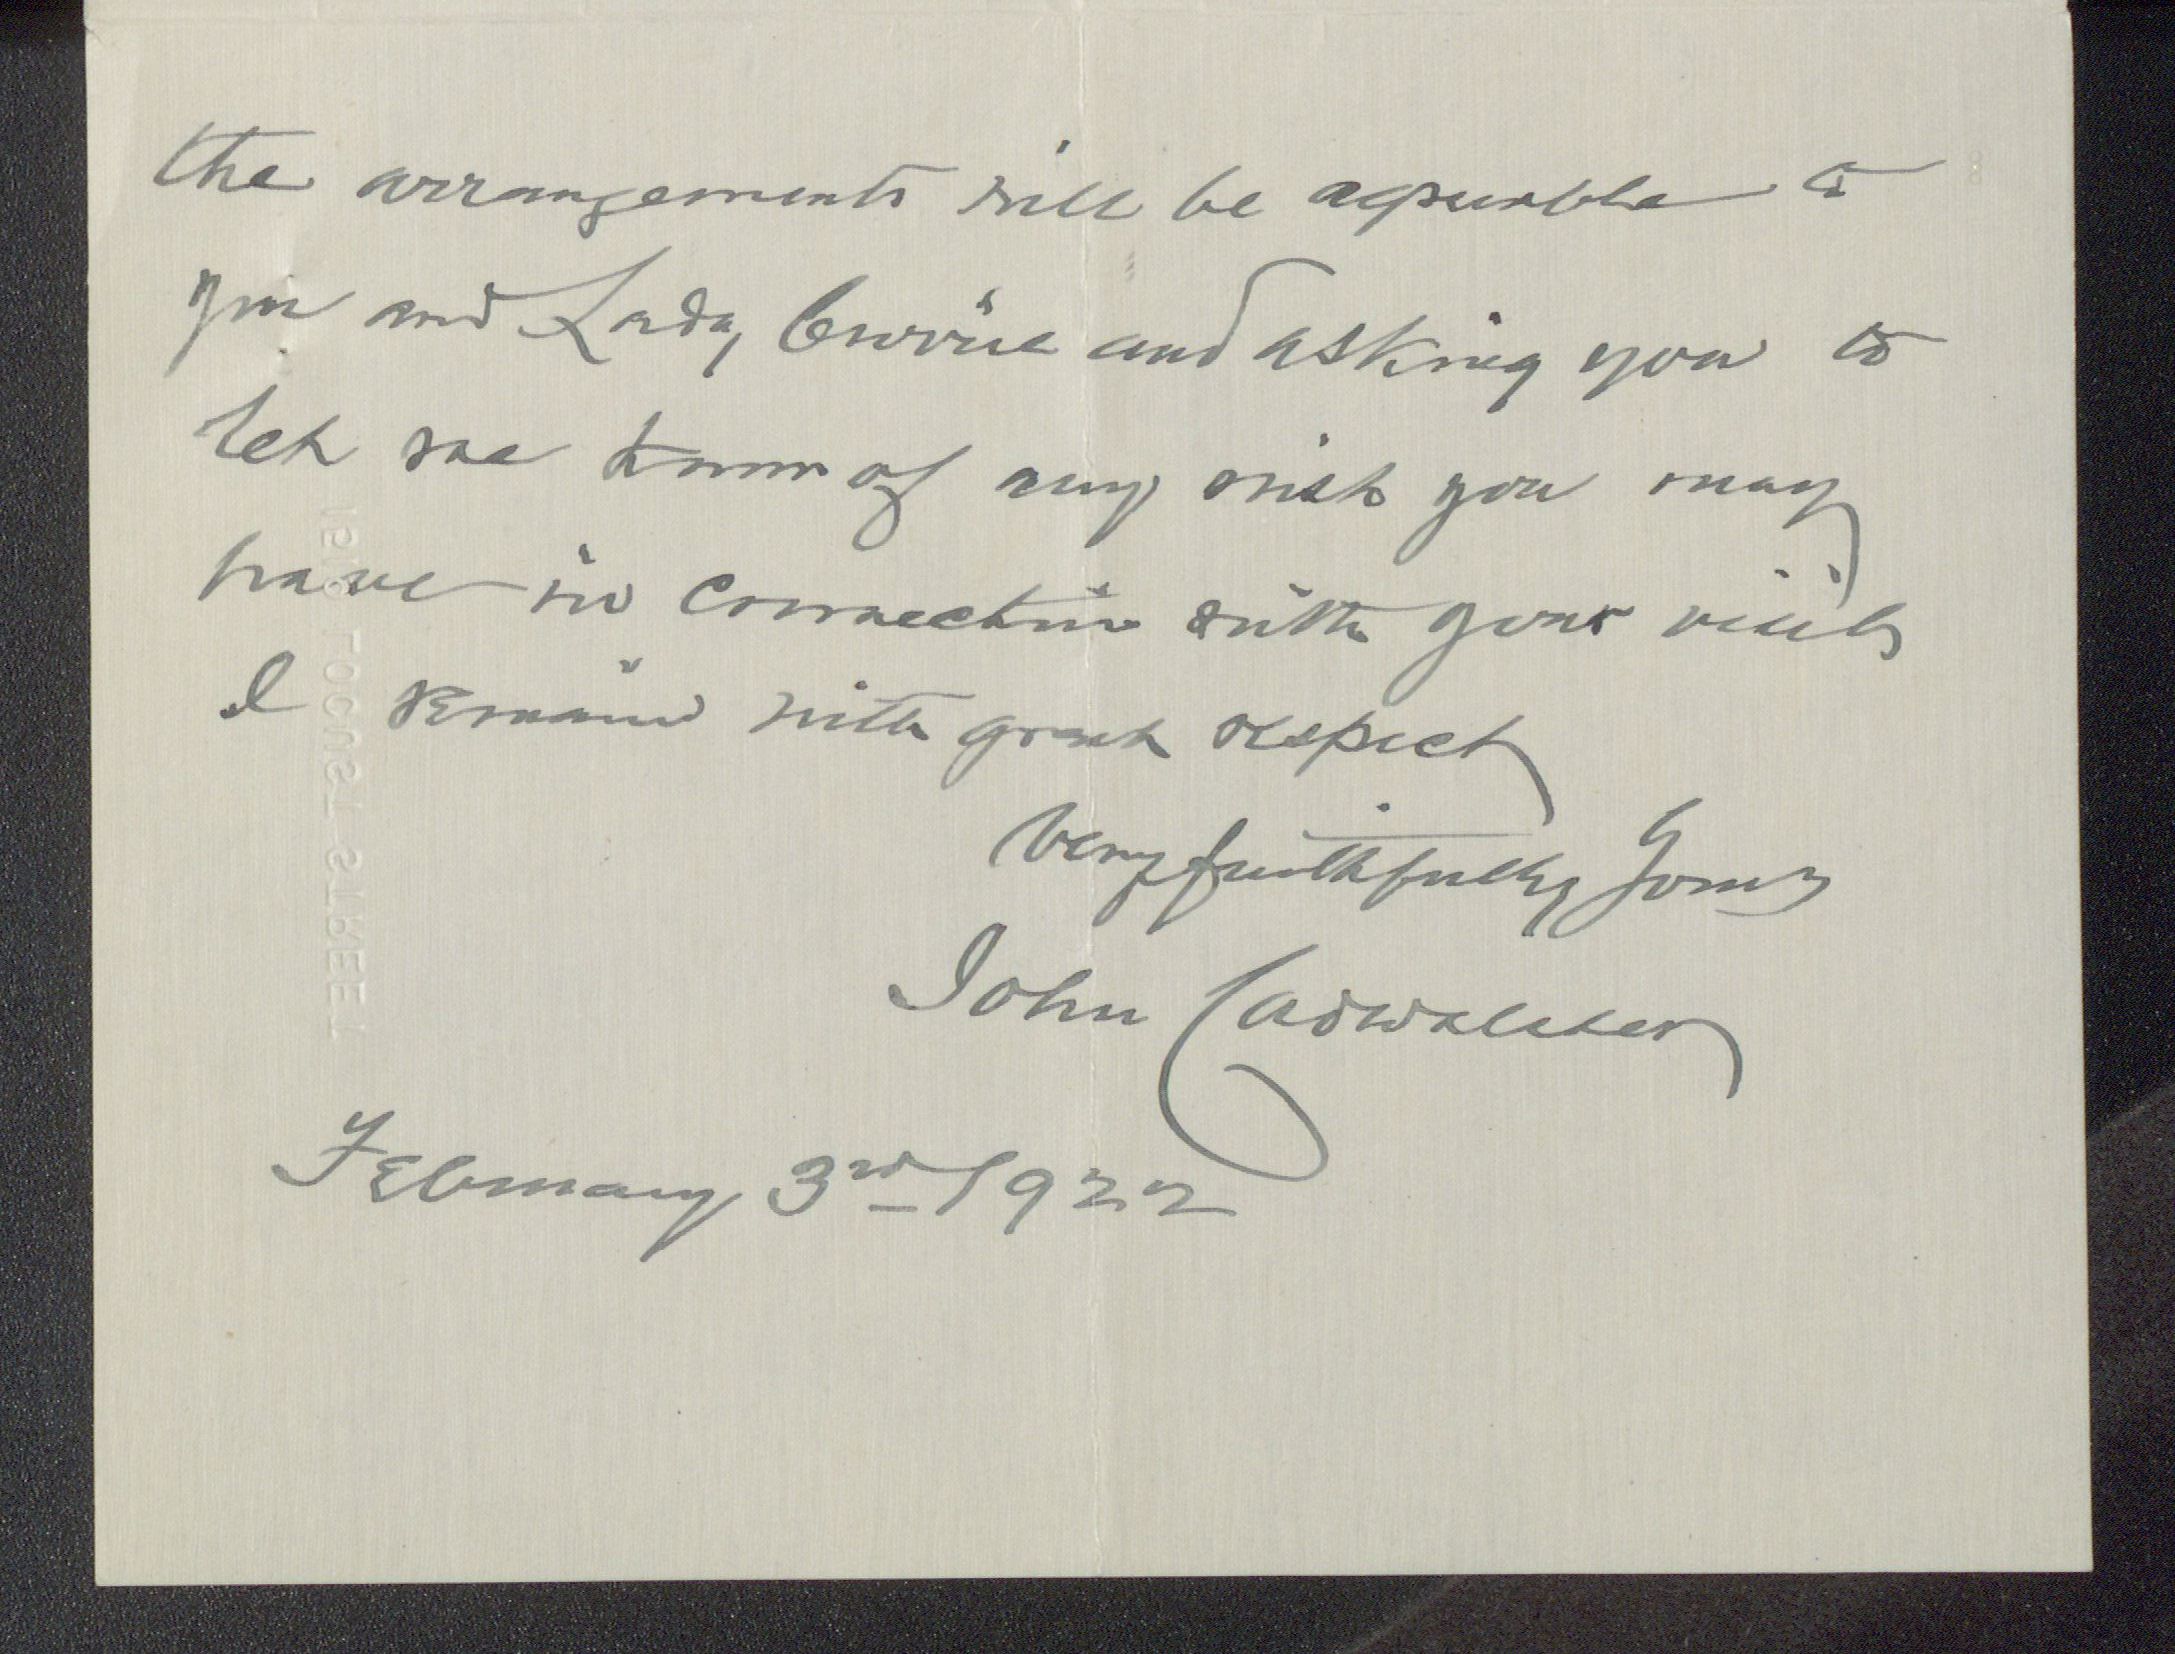 the arrangements will be agreeable to
you and Lady Currie and asking you to
let me know of any wish you may
have in connection with your visit
I remain with great respect
Very faithfully Yours
John Cadwalader
February 3rd 1922
LOCUST STREET